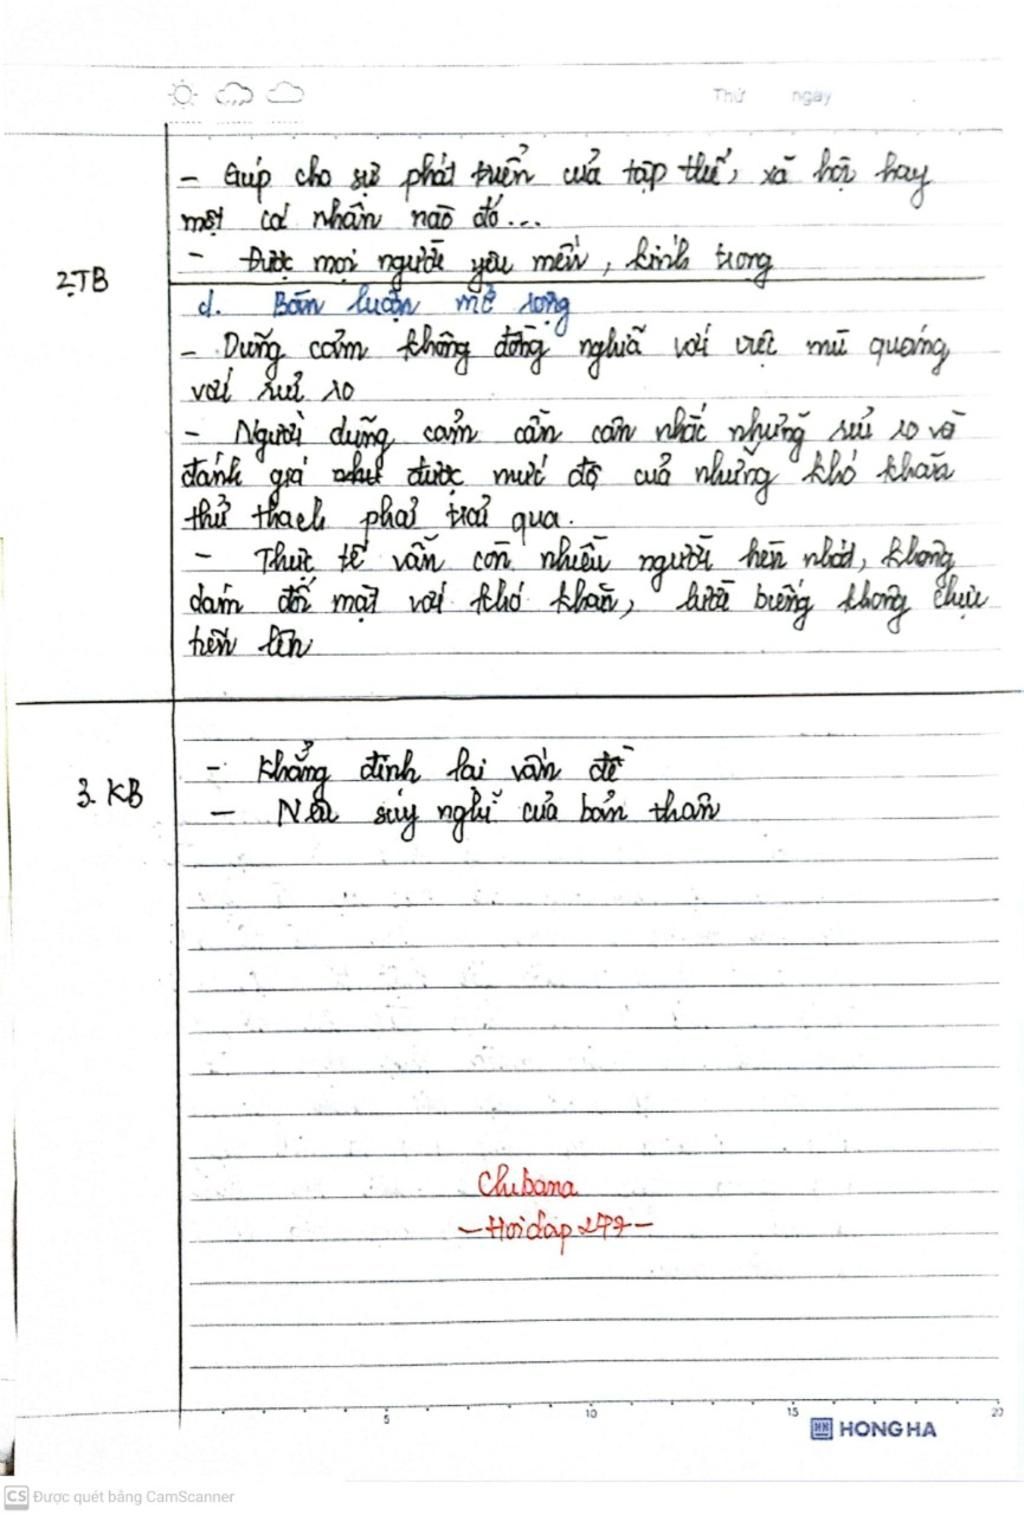 Thứ ngày
- Giúp cho sự phát triển của tập thể, xã hội hay
một cá nhân nào đó...
- Được mọi người yêu mến, kính trọng
2.TB
d. Bàn luận mở rộng
- Dũng cảm không đồng nghĩa với việc mù quáng
với rủi ro
- Người dũng cảm cần cân nhắc những rủi ro và
đánh giá được mức độ của những khó khăn
thử thách phải trải qua.
- Thực tế vẫn còn nhiều người hèn nhát, không
dám đối mặt với khó khăn, lười biếng không chịu
tiến lên
3. KB
- Khẳng định lại vấn đề
- Nêu suy nghĩ của bản thân
Chibana
- Hoidap247 -
5 10 15 20
HH HONG HA
CS Được quét bằng CamScanner